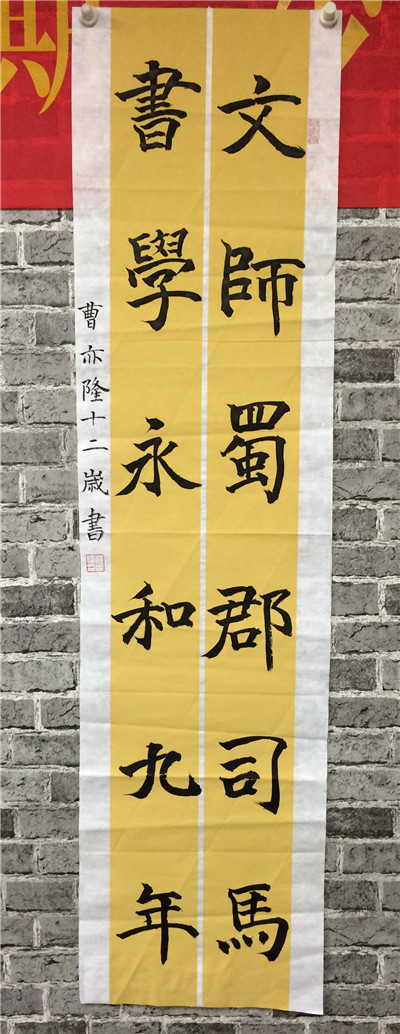 文師蜀郡司馬
書學永和九年
曹亦隆十二歲書
期